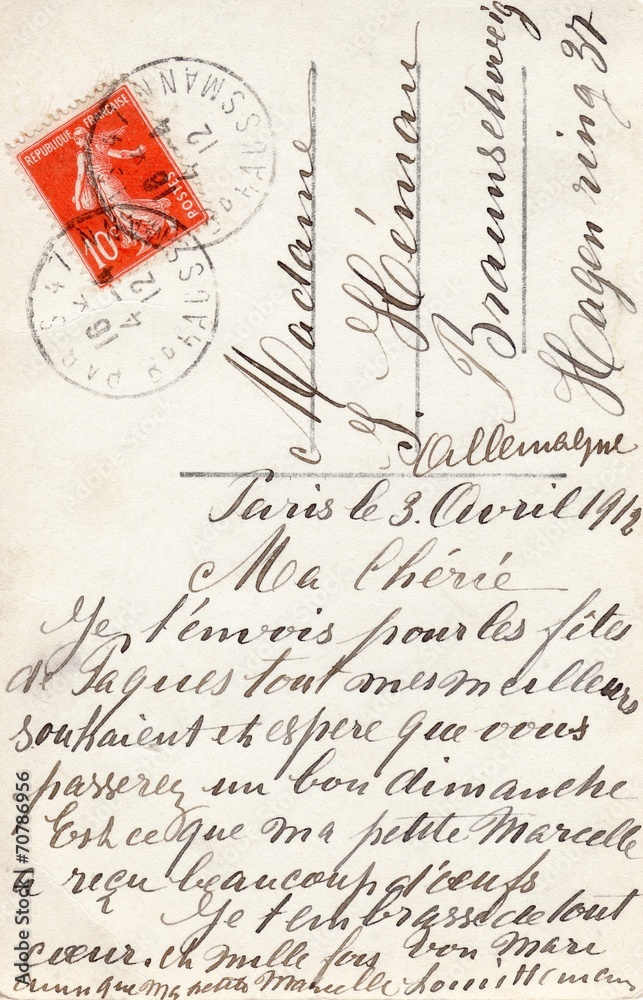 REPUBLIQUE FRANÇAISE
POSTES
10
PARIS 47 Bd HAUSSMANN
16 K
4 12
Bd HAUSSMANN
4 12
Madame
S. Héman
Braunschweig
Hagenring 37
Allemagne
Paris le 3. Avril 1912
Ma Chérie
Je t'envois pour les fêtes
de Paques tout mes meilleurs
souhaient et espere que vous
passerez un bon dimanche
Est ce que ma petite Marcelle
a reçu beaucoup d'œufs
Je t'embrasse de tout
cœur et mille fois bon Mari
que Ma petite Marcelle Louis Heman
Adobe Stock | #70786956